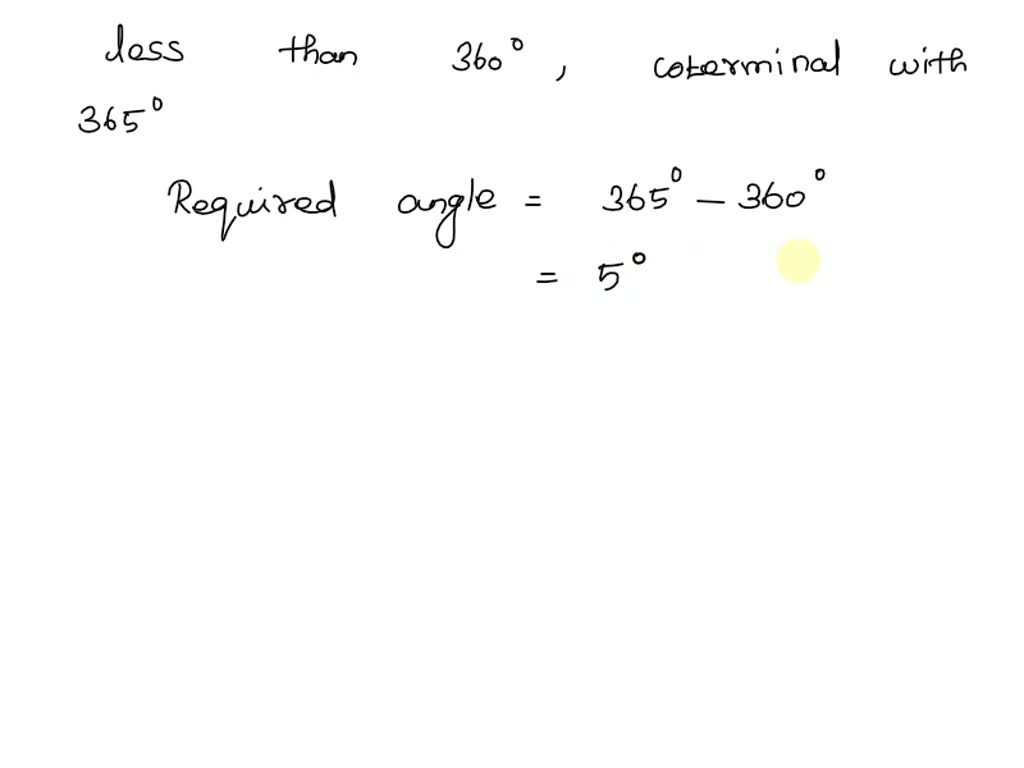 less than 360°, coterminal with
365°
Required angle = 365° - 360°
= 5°